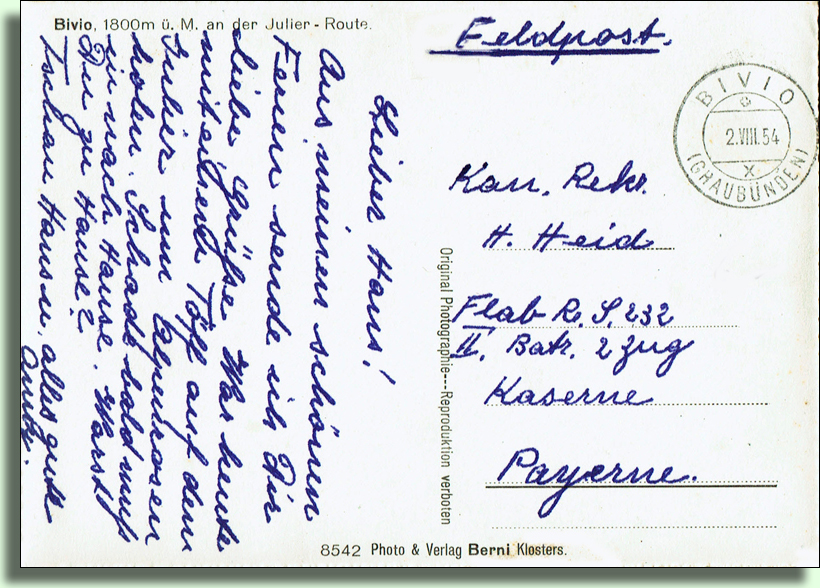 Bivio, 1800m ü. M. an der Julier - Route.
Lieber Hans!
Aus meinen schönen
Ferien sende ich Dir
liebe Grüße. War heute
mit Töff auf dem
Julier um Alpenrosen
holen. Schade bald muß
ich nach Hause. Warst
Du zu Hause?
Tschau Hansu, alles gute
Feldpost.
BIVIO
2.VIII.54
X
(GRAUBÜNDEN)
Kan. Rekr.
H. Heid
Flab R. S. 232
II. Batr. 2 Zug
Kaserne
Payerne.
Original Photographie---Reproduktion verboten
8542 Photo & Verlag Berni Klosters.